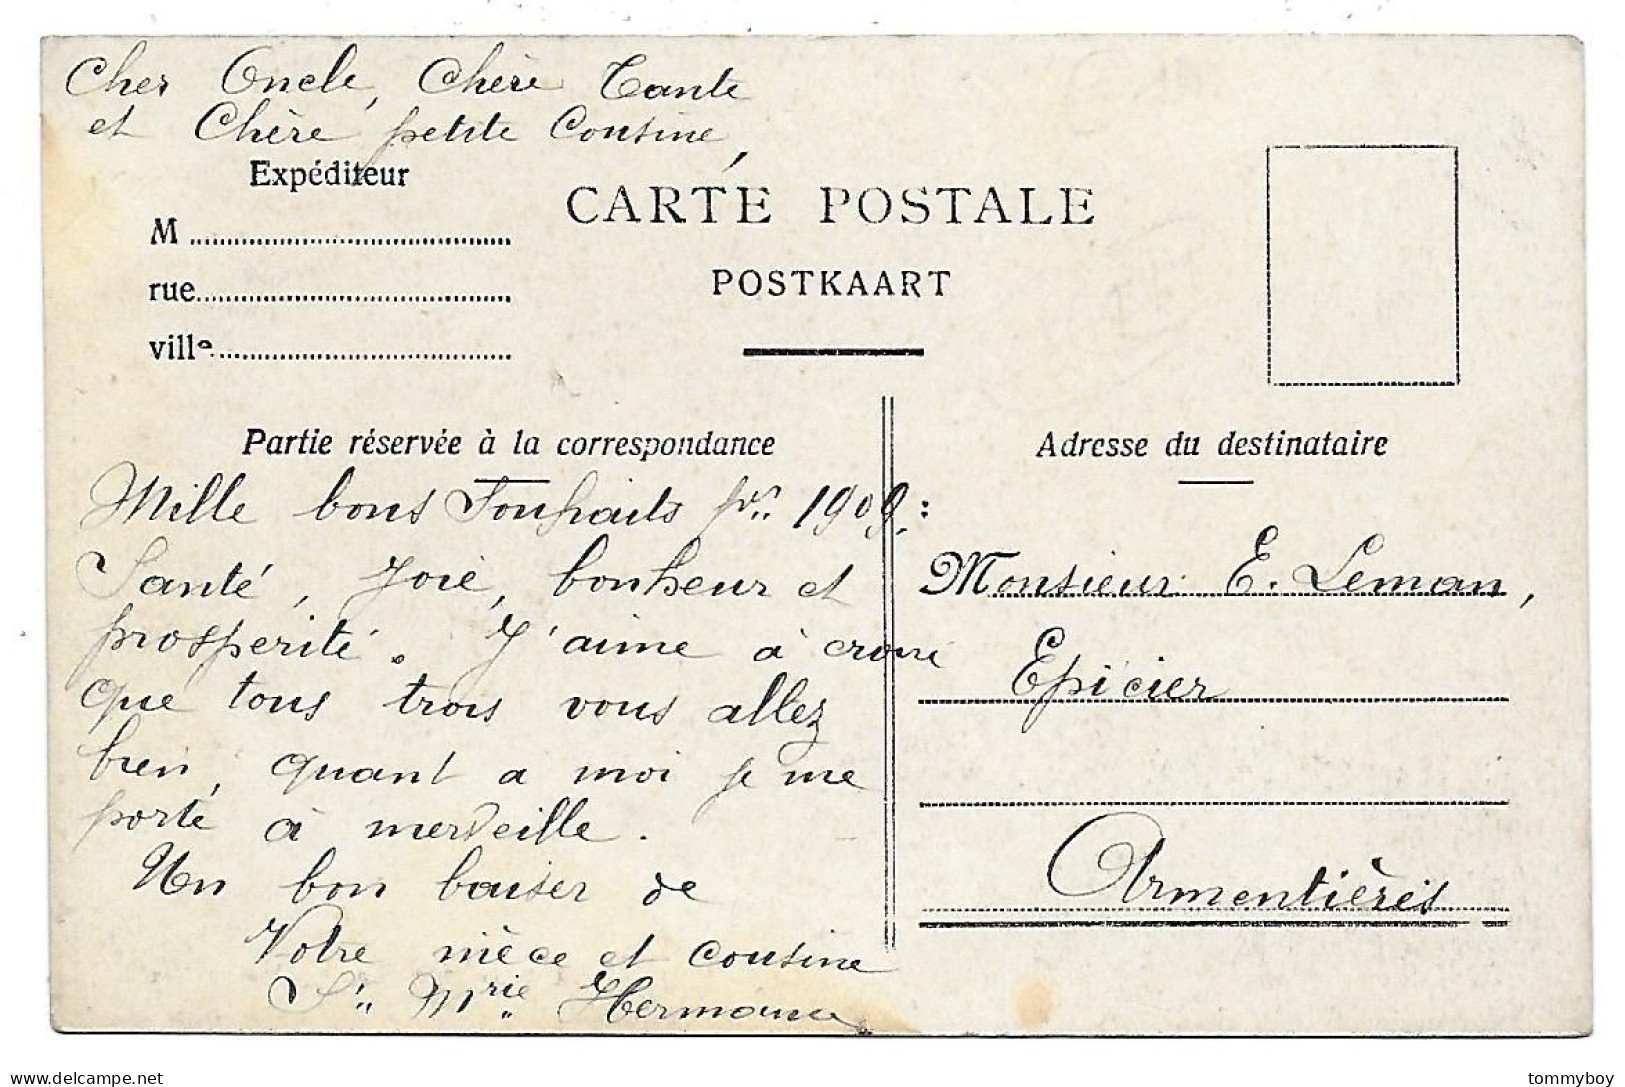 Cher Oncle, Chère Tante
et Chère petite Cousine,
Expéditeur
M
rue
ville
CARTE POSTALE
POSTKAART
Partie réservée à la correspondance
Mille bons Souhaits pr 1909:
Santé, Joie, bonheur et
prospérité. J'aime à croire
que tous trois vous allez
bien, quant a moi je me
porte à merveille.
Un bon baiser de
Votre nièce et cousine
Sr Mrie
Adresse du destinataire
Monsieur E. Leman,
Epicier
Armentières
delcampe.net
tommyboy